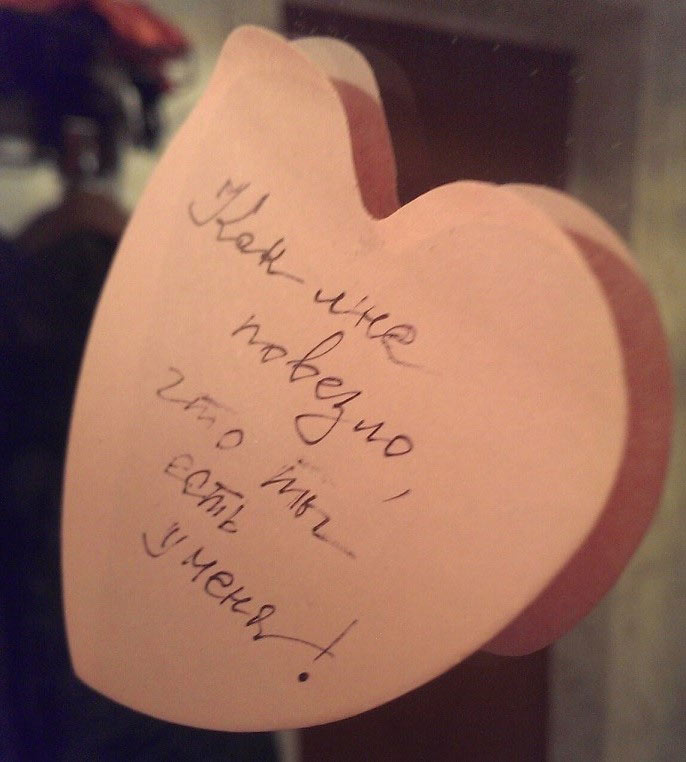 Как мне
повезло,
что ты
есть
у меня!